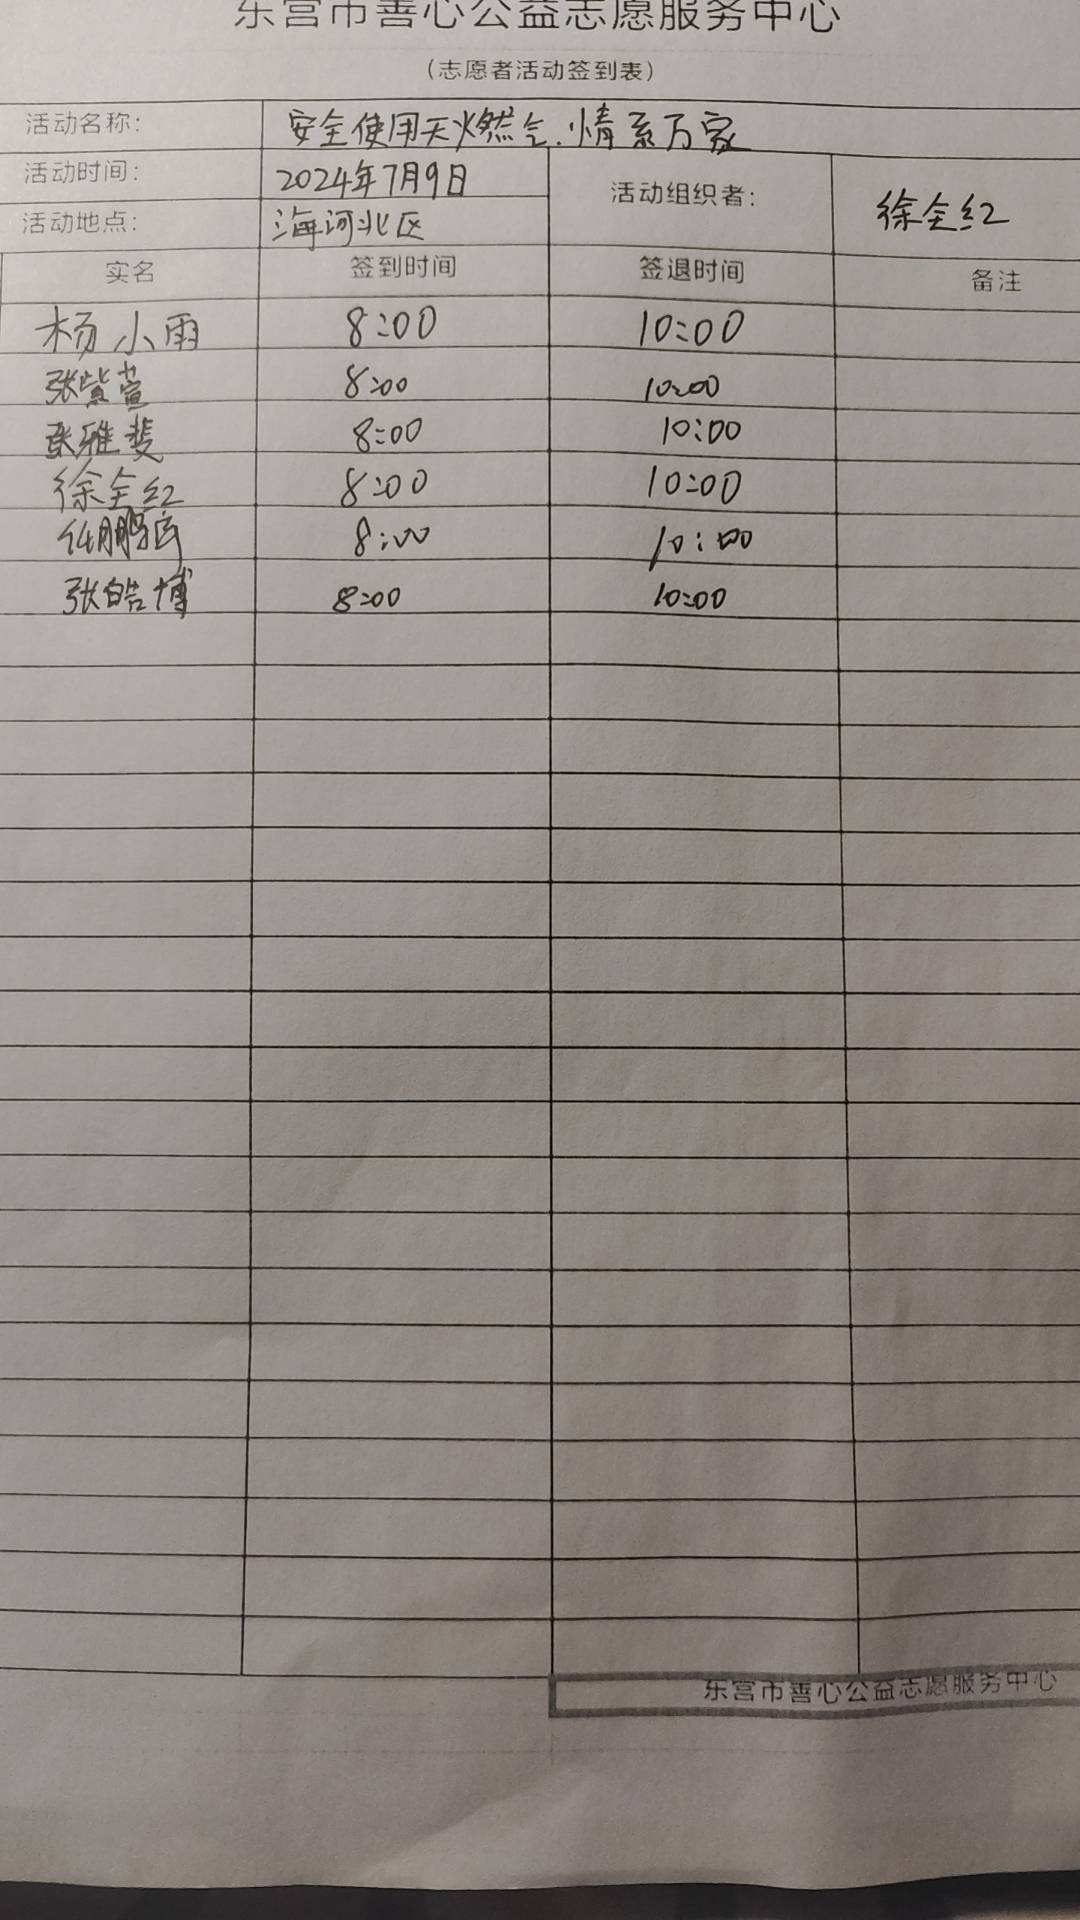 东营市善心公益志愿服务中心
（志愿者活动签到表）
活动名称： 安全使用天燃气.情系万家
活动时间： 2024年7月9日 活动组织者： 徐全红
活动地点： 海河北区
实名 签到时间 签退时间 备注
杨小雨 8:00 10:00
张紫萱 8:00 10:00
张雅斐 8:00 10:00
徐全红 8:00 10:00
8:00 10:00
张皓博 8:00 10:00
东营市善心公益志愿服务中心